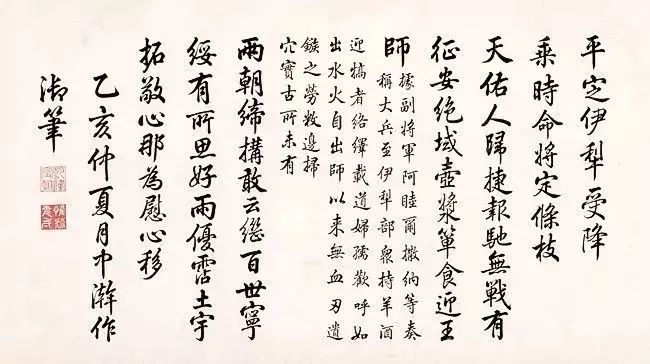 平定伊犁受降
乘時命將定條枝
天佑人歸捷報馳無戰有
征安絕域壺漿簞食迎王
師
據副將軍阿睦爾撒納等奏
稱大兵至伊犁部衆持羊酒
迎犒者絡繹載道婦孺歡呼如
出水火自出師以来無血刃遺
鏃之勞敉邊掃
穴實古所未有
兩朝締構敢云繼百世寧
綏有所思好雨優霑土宇
拓敬心那為慰心移
乙亥仲夏月中澣作
御筆